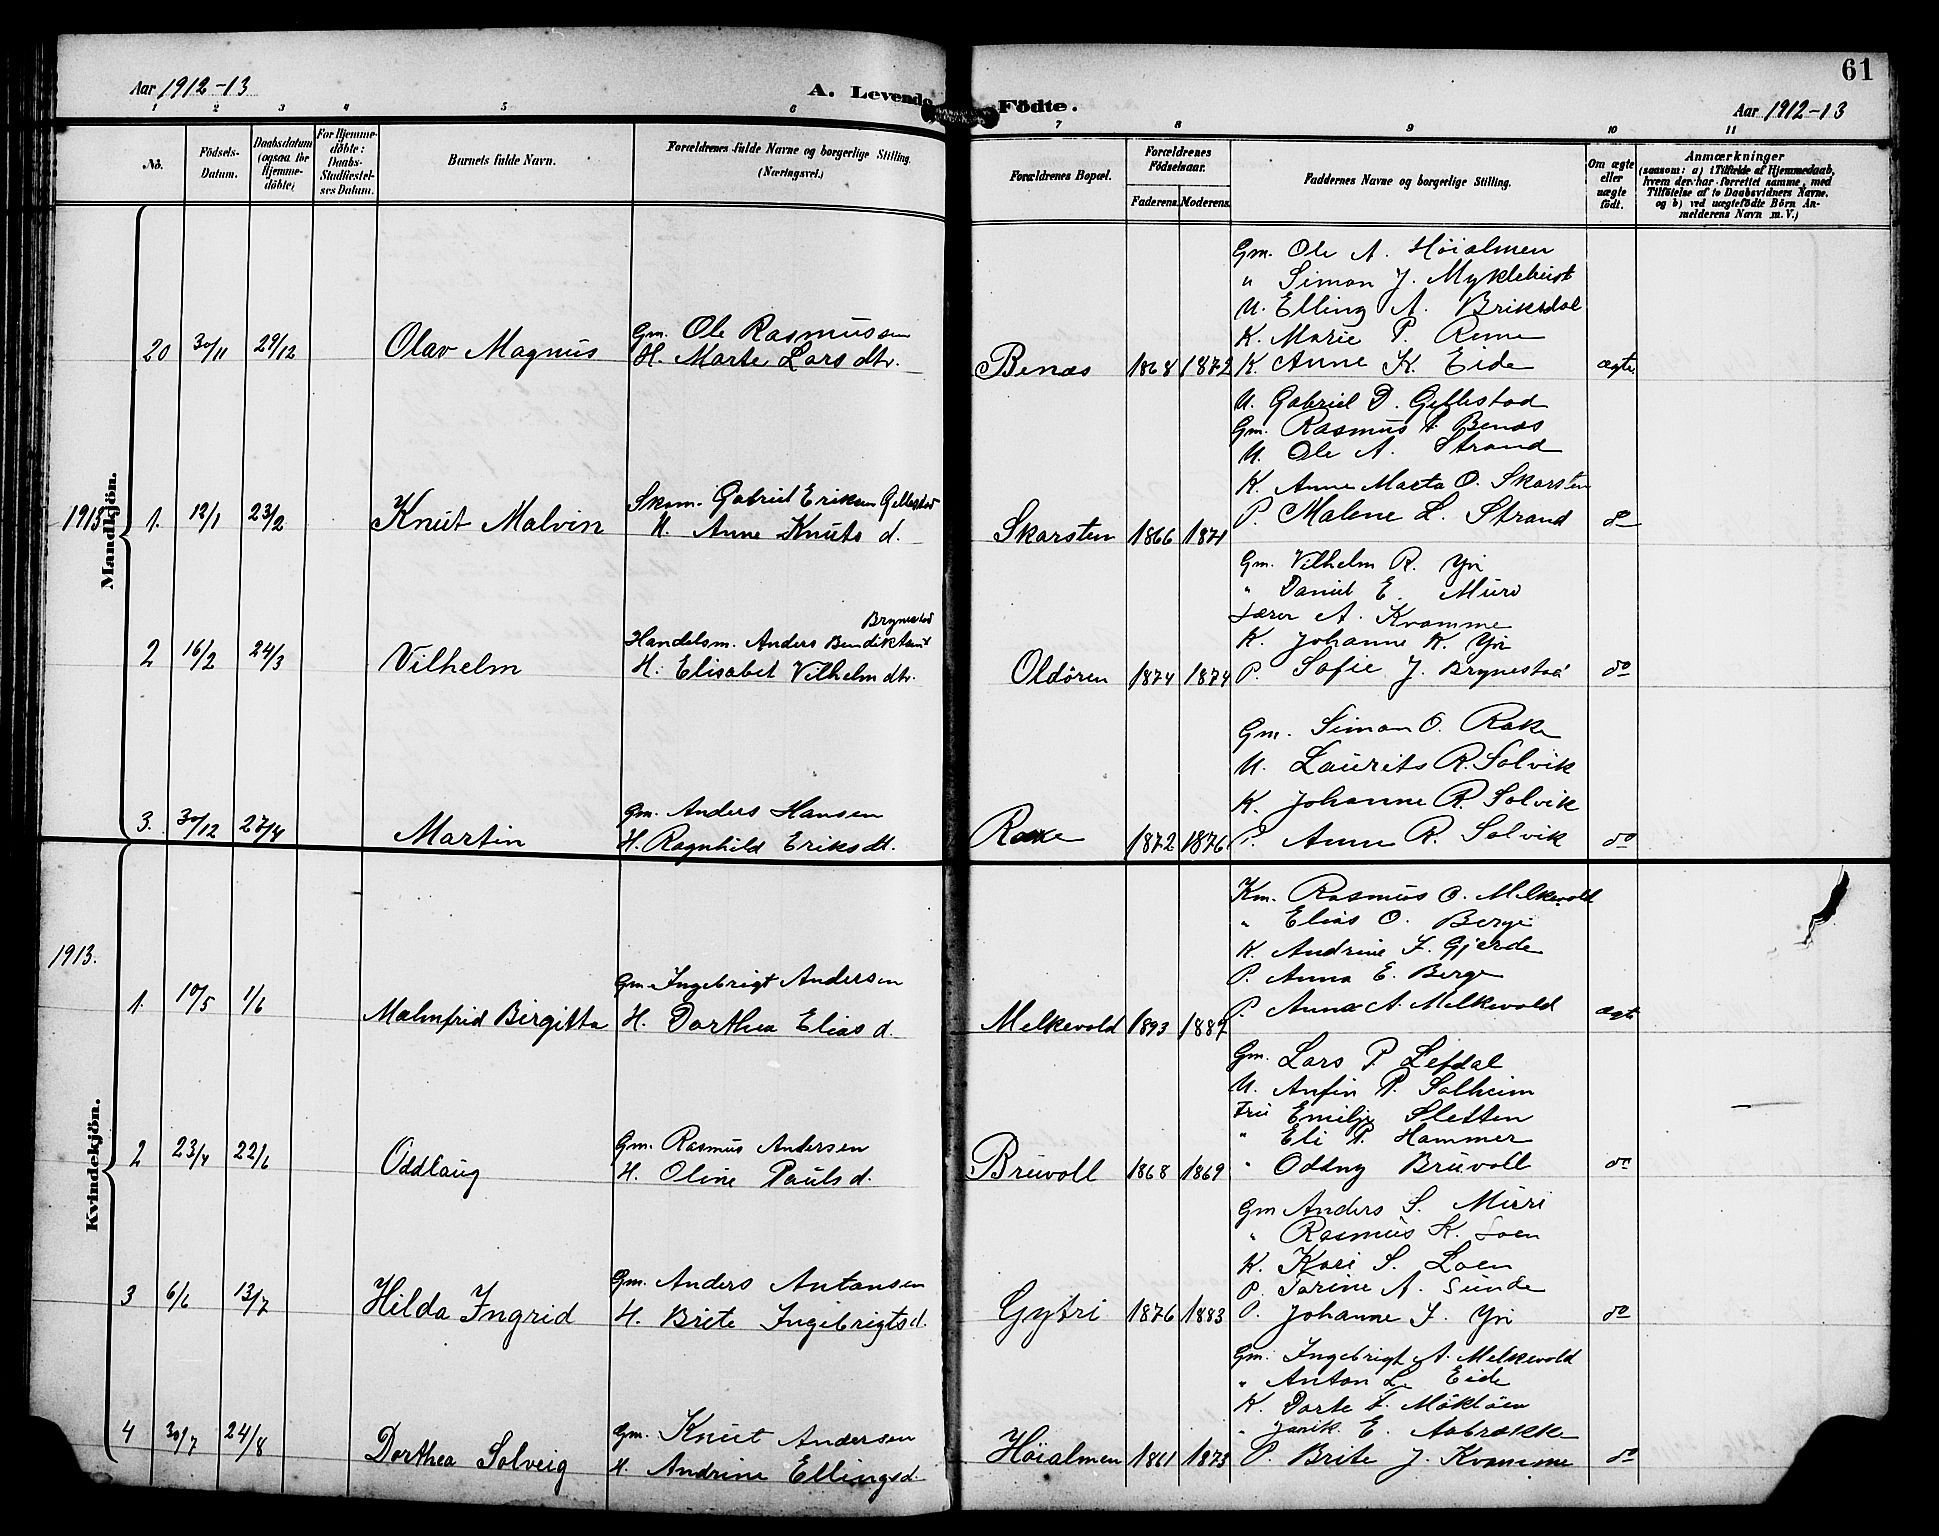 Aar 1912-13
A. Levende Födte.
61
Aar 1912-13
1 2 3 4 5 6 7 8 9 10 11
No.
Födsels-Datum.
Daabsdatum (ogsaa for Hjemme-döbte)
For Hjemme-döbte: Daabs-Stadfæstel-ses Datum.
Barnets fulde Navn.
Forældrenes fulde Navne og borgerlige Stilling. (Næringsvei.)
Forældrenes Bopæl.
Forældrenes Födselsaar.
Faderens. Moderens.
Faddernes Navne og borgerlige Stilling.
Om ægte eller uægte födt.
Anmærkninger
(saasom: a) i Tilfælde af Hjemmedaab, hvem der har forrettet samme, med Tilföielse af to Daabsvidners Navne. og b) ved uægtefödte Börn An-melderens Navn m. V.)
Mandkjön.
20 30/11 29/12 Olav Magnus
Gm. Ole Rasmussen
H. Marte Lars dtr.
Benæs 1868 1872
Gm. Ole A. Høialmen
" Simon J. Myklebust
U. Elling A. Briksdal
K. Marie P. Rem
K. Anne K. Eide
ægte
1913
1. 12/1 23/2 Knut Malvin
Skom. Gabriel Eriksen Gellestad
H. Anne Knuts d.
Skarsten 1866 1871
U. Gabriel D. Gellestad
Gm. Rasmus A. Benæs
U. Ole A. Strand
K. Anne Marta O. Skarsten
P. Malene L. Strand
do
2 16/2 24/3 Vilhelm
Brynestad
Handelsm. Anders Bendiktsen
H. Elisabet Vilhelm dtr.
Oldören 1874 1874
Gm. Vilhelm R. Yri
" Daniel E. Muri
Lærer A. Kvamme
K. Johanne K. Yri
P. Sofie J. Brynestad
do
3. 30/12 27/4 Martin
Gm. Anders Hansen
H. Ragnhild Eriks dt.
Rake 1872 1876
Gm. Simon O. Rake
U. Laurits R. Solvik
K. Johanne R. Solvik
P. Anne R. Solvik
do
Kvindekjön.
1913.
1. 10/5 1/6 Malmfrid Birgitta
Gm. Ingebrigt Andersen
H. Dorthea Elias d.
Melkevold 1893 1889
Km. Rasmus O. Melkevold
" Elias O. Berge
K. Andrine I. Gjerde
P. Anna E. Berge
P. Anna A. Melkevold
ægte
2 23/4 22/6 Oddlaug
Gm. Rasmus Andersen
H. Oline Pauls d.
Bruvoll 1868 1869
Gm. Lars P. Lefdal
U. Anfin P. Solheim
Fru Emilje Sletten
" Eli P. Hammer
" Oddny Bruvoll
do
3 6/6 13/7 Hilda Ingrid
Gm. Anders Antonsen
H. Brite Ingebrigts d.
Gytri 1876 1883
Gm Anders S. Muri
" Rasmus K. Loen
K. Kari S. Loen
P. Tarine A. Sunde
P. Johanne I. Yri
do
4 30/7 24/8 Dorthea Solveig
Gm. Knut Andersen
H. Andrine Ellings d.
Høialmen 1861 1873
Gm. Ingebrigt A. Melkevold
" Anton L. Eide
K. Dorte
E. Aabrække
P. Brite J. Kvamme
do